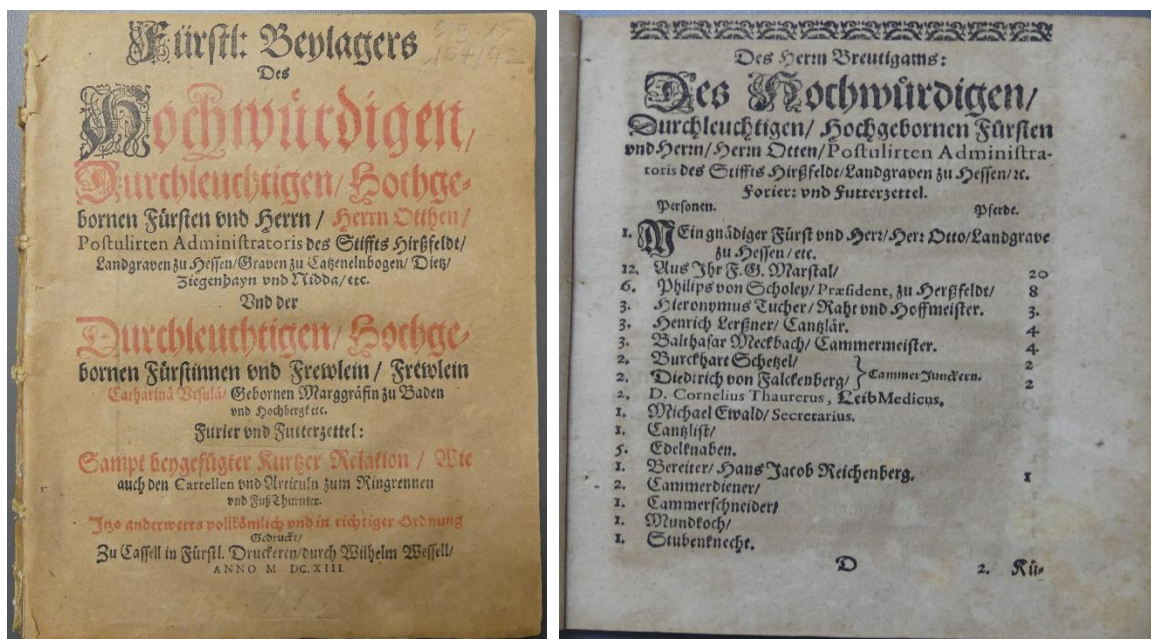 Fürstl: Beylagers
Des
Hochwürdigen,
Durchleuchtigen/ Hochge-
bornen Fürsten vnd Herrn / Herrn Otthen /
Postulirten Administratoris des Stiffts Hirßfeldt/
Landgraven zu Hessen/Graven zu Catzenelnbogen/ Dietz/
Ziegenhayn vnd Nidda/ etc.
Vnd der
Durchleuchtigen/ Hochge-
bornen Fürstinnen vnd Frewlein / Frewlein
Catharinā Vrsulā/ Gebornen Marggräfin zu Baden
vnd Hochbergk etc.
Furier vnd Futterzettel:
Sampt beygefügter Kurtzer Relation / Wie
auch den Cartellen vnd Articuln zum Ringrennen
vnd FußThurnier.
Itzo anderwerts vollkömlich vnd in richtiger Ordnung
Gedruckt/
Zu Cassell in Fürstl. Druckerey/durch Wilhelm Wessell/
ANNO M DC.XIII.
Des Herrn Breutigams:
Des Hochwürdigen/
Durchleuchtigen/ Hochgebornen Fürsten
vnd Herrn/ Herrn Otten/ Postulirten Administra-
toris des Stiffts Hirßfeldt/Landgraven zu Hessen/ ꝛc.
Forier: vnd Futterzettel.
Personen. Pferde.
1. MEin gnädiger Fürst vnd Herr/ Herr Otto/Landgrave
zu Hessen/ etc.
12. Aus Ihr F.G. Marstal/ 20
6. Philips von Scholey/ Præsident, zu Herßfeldt/ 8
3. Hieronymus Tucher/ Raht vnd Hoffmeister. 3.
3. Henrich Lerßner/ Cantzlär. 4
3. Balthasar Meckbach/ Cammermeister. 4
2. Burckhart Schetzel/ 2
2. Diedrich von Falckenberg/ } CammerJunckern. 2
2. D. Cornelius Thaurerus, LeibMedicus.
1. Michael Ewald/ Secretarius.
1. Cantzlist/
5. Edelknaben.
1. Bereiter/ Hans Jacob Reichenberg. 1
2. Cammerdiener/
1. Cammerschneider/
1. Mundkoch/
1. Stubenknecht.
D 2. Kü-